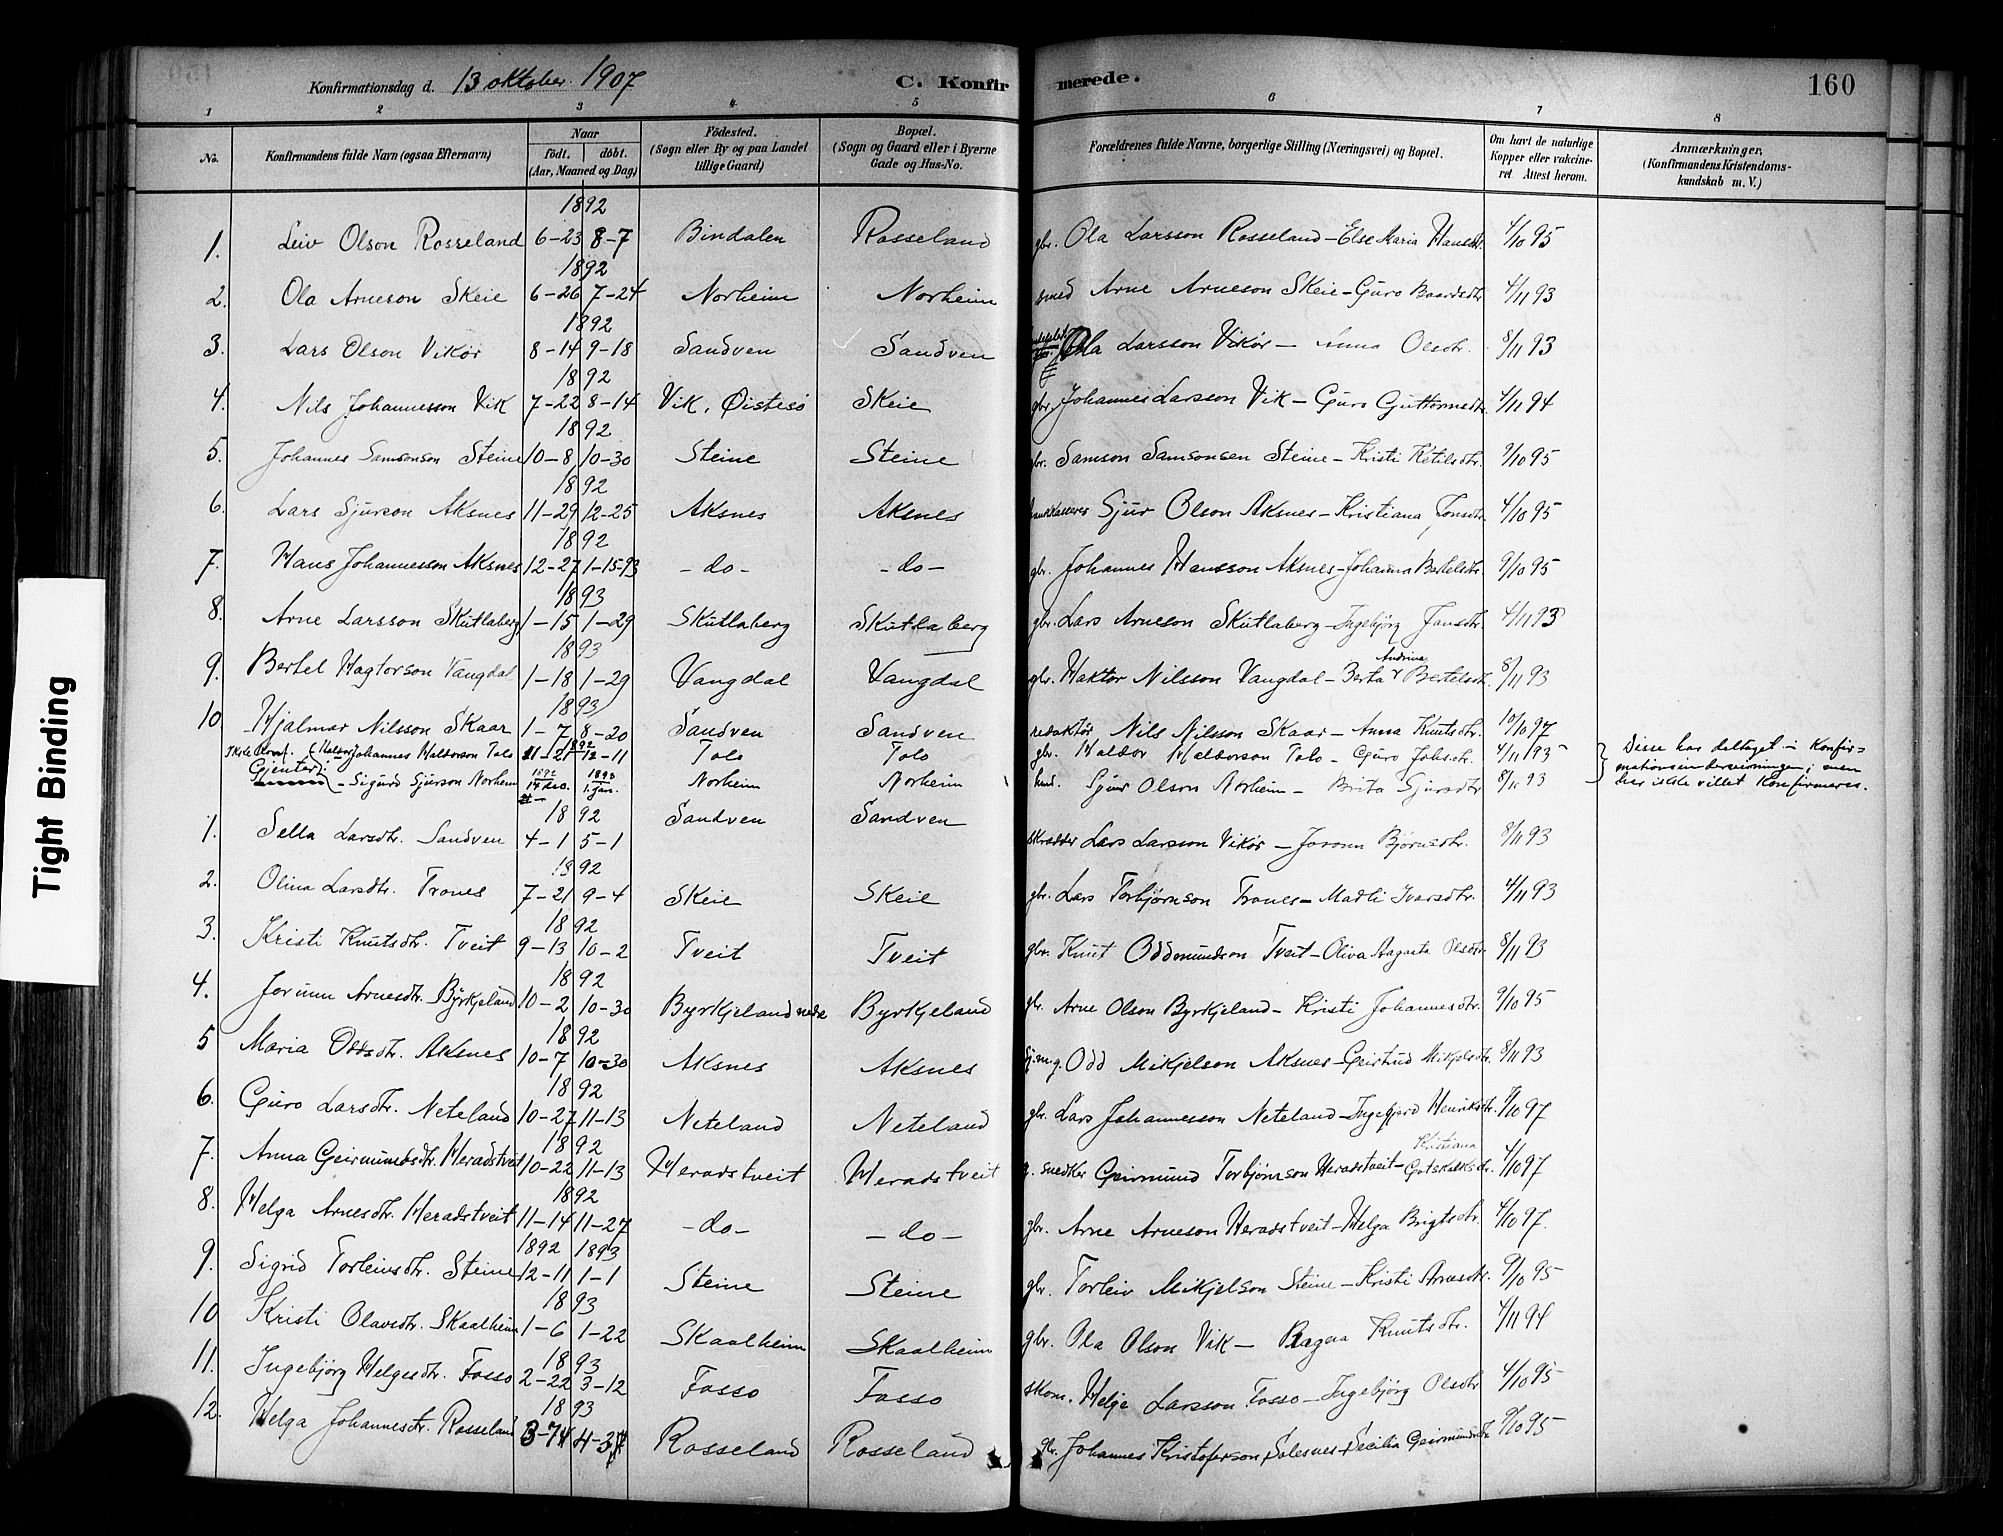 Konfirmationsdag d. 13 oktober 1907 C. Konfirmerede. 160
1 2 3 4 5 6 7 8
No. Konfirmandens fulde Navn (ogsaa Efternavn) Naar födt. döbt. (Aar, Maaned og Dag) Födested. (Sogn eller By og paa Landet tillige Gaard) Bopæl. (Sogn og Gaard eller i Byerne Gade og Hus-No. Forældrenes fulde Navne, borgerlige Stilling (Næringsvei) og Bopæl. Om havt de naturlige Kopper eller vakcineret Attest herom. Anmærkninger, (Konfirmandens Kristendomskundskab m. V.)
1892
1. Leiv Olson Rosseland 6-23 8-7 Bindalen Rosseland gbr. Ola Larsson Rosseland - Else Maria Hansdtr. 4/10 95
1892
2. Ola Arneson Skeie 6-26 7-24 Norheim Norheim smed Arne Arneson Skeie - Guro Baardsdtr. 4/11 93
1892
3. Lars Olson Vikør 8-14 9-18 Sandven Sandven Ola Larsson Vikør - Anna Olsdtr. 8/11 93
1892
4. Nils Johannesson Vik 7-22 8-14 Vik, Øistesø Skeie gbr. Johannes Larsson Vik - Guro Guttormsdtr. 4/11 94
1892
5. Johannes Samsonson Steine 10-8 10-30 Steine Steine gbr. Samson Samsonsen Steine - Kristi Ketilsdtr. 9/10 95
1892
6. Lars Sjurson Aksnes 11-29 12-25 Aksnes Aksnes Sjur Olson Aksnes - Kristiana Jonsdtr. 4/10 95
1892
7. Hans Johannesson Aksnes 12-27 1-15-93 -do- -do- gbr. Johannes Hansson Aksnes - Johanna Bertelsdtr. 9/10 95
1893
8. Arne Larsson Skutlaberg 1-15 1-29 Skutlaberg Skutlaberg gbr. Lars Arneson Skutlaberg - Ingebjörg Jansdtr. 4/11 93
1893
9. Bertel Hagtorson Vangdal 1-18 1-29 Vangdal Vangdal gbr. Haktor Nilsson Vangdal - Berta Andrina Bertelsdtr. 8/11 93
1893
10 Hjalmar Nilsson Skaar 1-7 8-20 Sandven Sandven redaktør Nils Nilsson Skaar - Anna Knutsdtr. 10/10 97
Ikke konf. Johannes Haldorson Tolo 11-21 1892 12-11 Tolo Tolo gbr. Haldor Haldorson Tolo - Guro Johsdtr. 4/11 95 Disse har deltaget i Konfir=
Gjenter: - Sigurd Sjurson Norheim 1892 14 dec. 1893 1. jan. Norheim Norheim hmd. Sjur Olson Norheim - Brita Sjursdtr 8/11 93 mationsundervisningen, men har ikke villet Konfirmeres.
1892
1. Sella Larsdtr. Sandven 4-1 5-1 Sandven Sandven skrædder Lars Larsson Vikør - Joronn Bjørnsdtr. 8/11 93
1892
2. Olina Larsdtr. Trones 7-21 9-4 Skeie Skeie gbr. Lars Torbjørnson Trones - Madli Ivarsdtr. 4/11 93
1892
3. Kristi Knutsdtr. Tveit 9-13 10-2 Tveit Tveit gbr. Knut Oddmundson Tveit - Oliva Augusta Olsdtr 8/11 93
1892
4. Jorunn Arnesdtr. Byrkjeland 10-2 10-30 Byrkjeland nedre Byrkjeland gbr. Arne Olson Byrkjeland - Kristi Johannesdtr. 9/10 95
1892
5 Maria Oddsdtr. Aksnes 10-7 10-30 Aksnes Aksnes Odd Mikjelson Aksnes - Geirtrud Mikjelsdtr. 8/11 93
1892
6. Guro Larsdtr. Neteland 10-27 11-13 Neteland Neteland gbr. Lars Johannesson Neteland - Ingebjord Henriksdtr. 9/10 97
1892
7. Anna Geirmundsdtr. Heradstveit 10-22 11-13 Heradstveit Heradstveit snedker Geirmund Torbjørnson Heradstveit - Kristiana Gotskalksdtr. 4/10 97
1892
8. Helga Arnesdtr. Heradstveit 11-14 11-27 -do- -do- gbr. Arne Arneson Heradstveit - Helga Brigtsdtr. 4/10 97.
1892 1893
9. Sigrid Torleivsdtr. Steine 12-11 1-1 Steine Steine gbr. Torleiv Mikjelson Steine - Kristi Arnesdtr. 9/10 95
1893
10 Kristi Olavsdtr. Skaalheim 1-6 1-22 Skaalheim Skaalheim gbr. Ola Olson Vik - Ragna Knutsdtr. 4/11 94
1893
11. Ingebjörg Helgesdtr. Fosso 2-22 3-12 Fosso Fosso skom. Helje Larsson Fosso - Ingebjörg Olsdtr 4/10 95
1893
12. Helga Johannesdtr. Rosseland Rosseland Rosseland gbr. Johannes Kristoferson Solesnes - Secilia Geirmundsdtr 9/10 95
Tight Binding